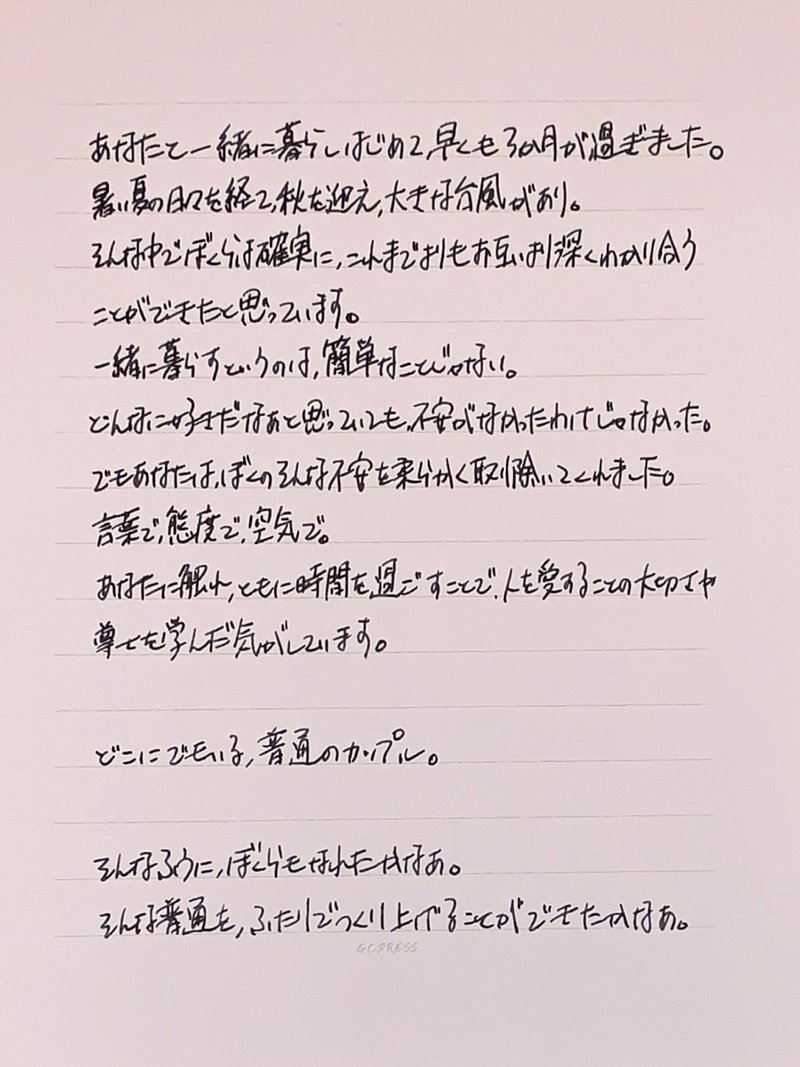 あなたと一緒に暮らしはじめて、早くも3か月が過ぎました。
暑い夏の日々を経て、秋を迎え、大きな台風があり。
そんな中でぼくらは確実に、これまでよりもお互いより深くわかり合う
ことができたと思っています。
一緒に暮らすというのは、簡単なことじゃない。
どんなに好きだなあと思っていても、不安がなかったわけじゃなかった。
でもあなたは、ぼくのそんな不安を柔らかく取り除いてくれました。
言葉で、態度で、空気で。
あなたに触れ、ともに時間を過ごすことで、人を愛することの大切さや
尊さを学んだ気がしています。
どこにでもいる、普通のカップル。
そんなふうに、ぼくらもなれたかなあ。
そんな普通を、ふたりでつくり上げることができたかなあ。
G.C.PRESS